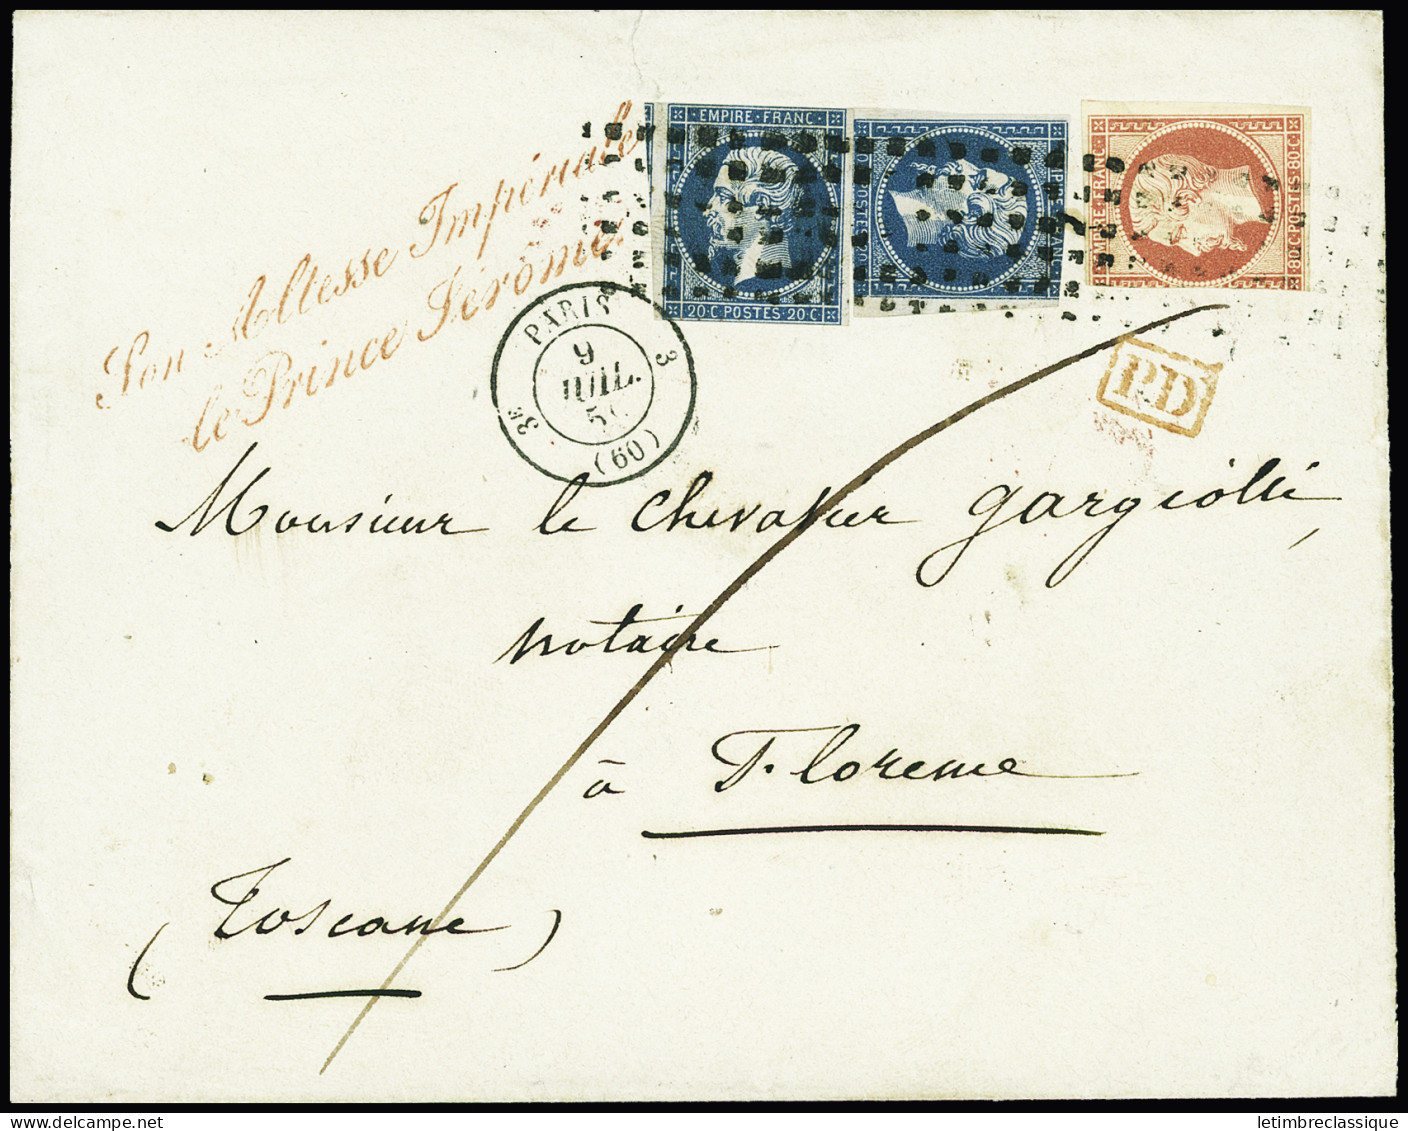 Son Altesse Impériale
le Prince Jérôme
EMPIRE · FRANC ·
20 · C POSTES · 20 · C
EMPIRE · FRANC ·
80 · C · POSTES · 80 · C
PARIS
3E
3
9
JUIL.
(60)
P.D
Monsieur le Chevalier gargiolli,
notaire
à Florence
(Toscane)
letimbreclassique